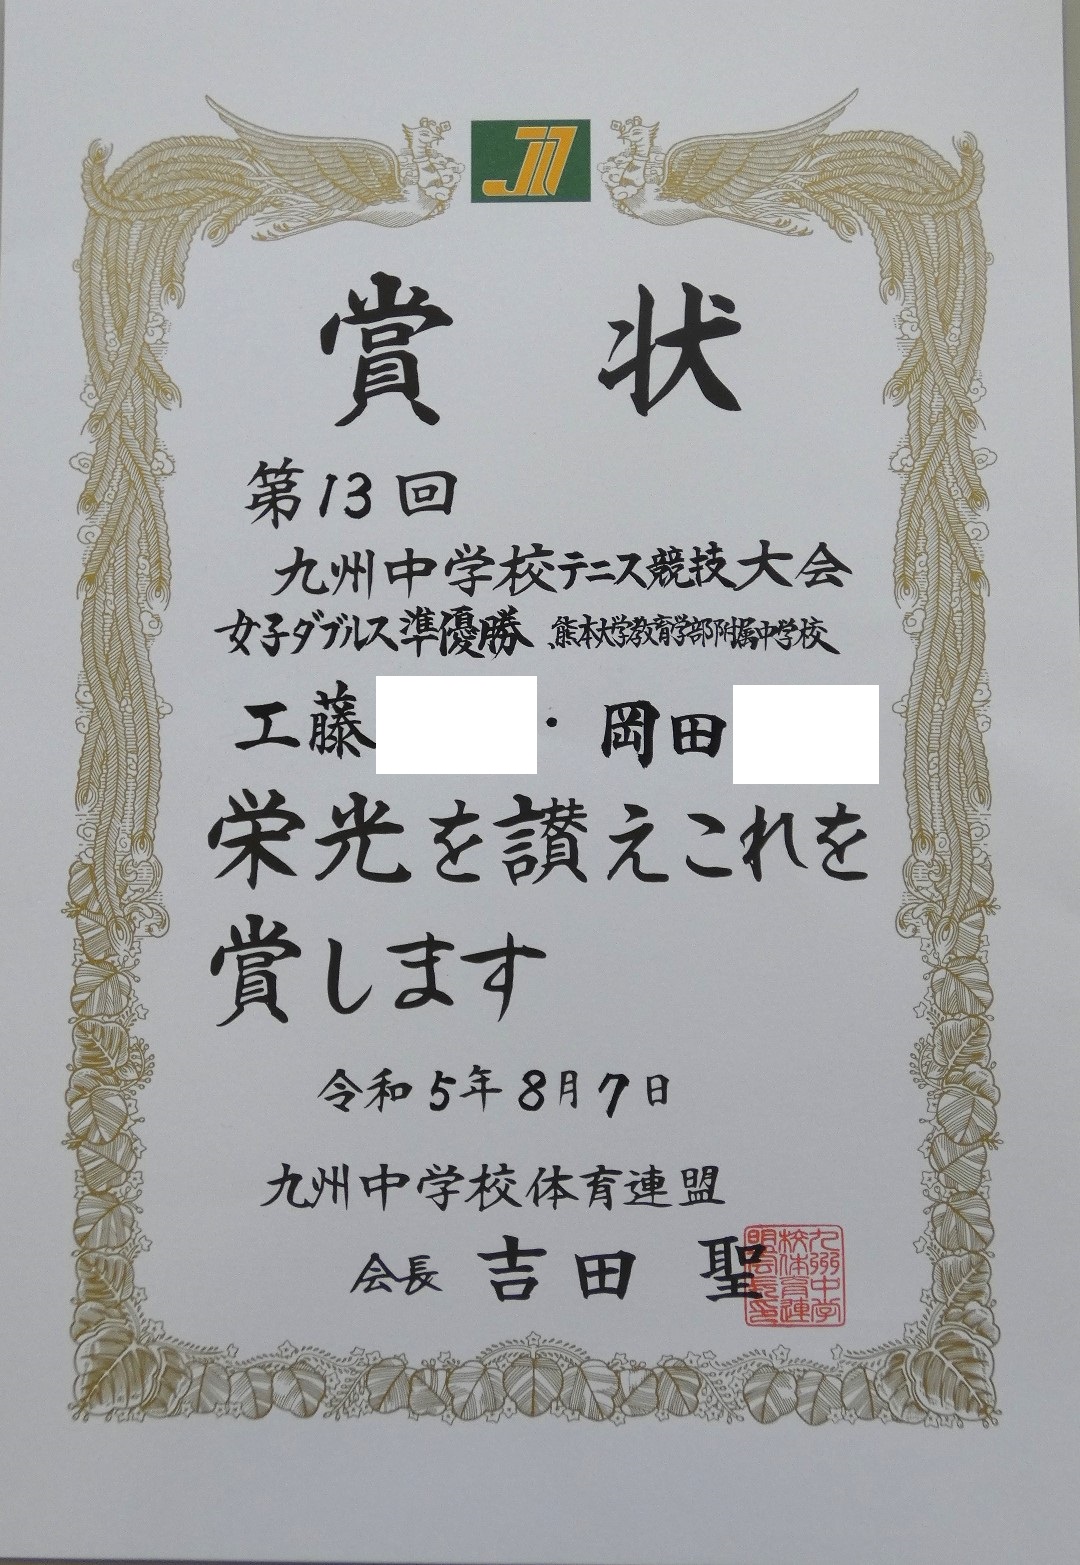 賞状
第13回
九州中学校テニス競技大会
女子ダブルス準優勝 熊本大学教育学部附属中学校
工藤 ・ 岡田
栄光を讃えこれを
賞します
令和5年8月7日
九州中学校体育連盟
会長 吉田 聖
九州中学
校体育連
盟会長印